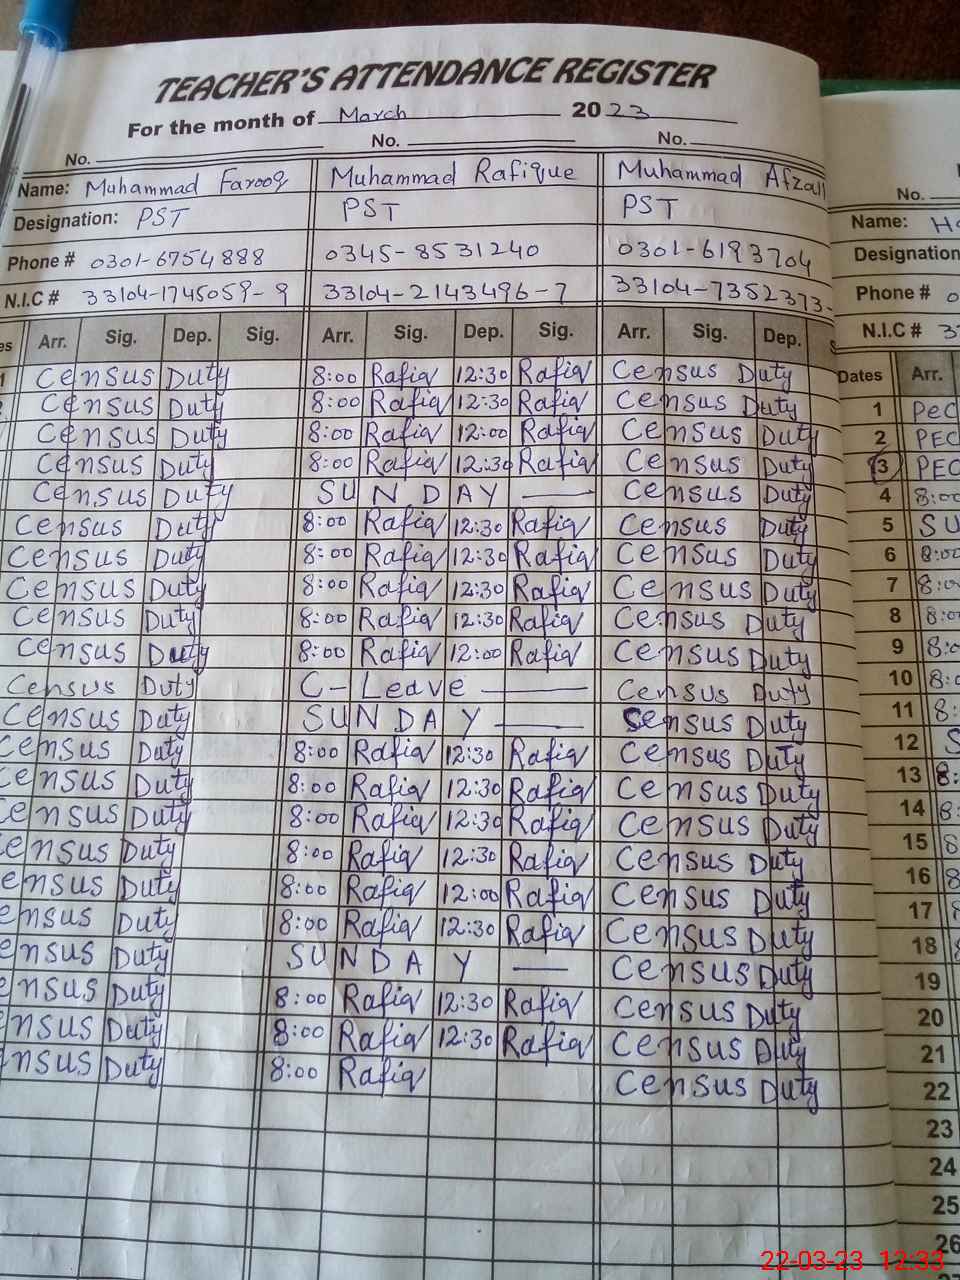 TEACHER'S ATTENDANCE REGISTER
For the month of March 2023
No. No. No.
Name: Muhammad Farooq Muhammad Rafique Muhammad Afzal
Designation: PST PST PST
Phone # 0301-6754888 0345-8531240 0301-6193704
N.I.C # 33104-1745059-9 33104-2143496-7 33104-7352373-
es Arr. Sig. Dep. Sig. Arr. Sig. Dep. Sig. Arr. Sig. Dep. S
1 Census Duty 8:00 Rafiq 12:30 Rafiq Census Duty
2 Census Duty 8:00 Rafiq 12:30 Rafiq Census Duty
Census Duty 8:00 Rafiq 12:00 Rafiq Census Duty
Census Duty 8:00 Rafiq 12:30 Rafiq Census Duty
Census Duty SUNDAY — Census Duty
Census Duty 8:00 Rafiq 12:30 Rafiq Census Duty
Census Duty 8:00 Rafiq 12:30 Rafiq Census Duty
Census Duty 8:00 Rafiq 12:30 Rafiq Census Duty
Census Duty 8:00 Rafiq 12:30 Rafiq Census Duty
Census Duty 8:00 Rafiq 12:00 Rafiq Census Duty
Census Duty C-Leave — Census Duty
Census Duty SUNDAY — Census Duty
Census Duty 8:00 Rafiq 12:30 Rafiq Census Duty
Census Duty 8:00 Rafiq 12:30 Rafiq Census Duty
Census Duty 8:00 Rafiq 12:30 Rafiq Census Duty
Census Duty 8:00 Rafiq 12:30 Rafiq Census Duty
ensus Duty 8:00 Rafiq 12:00 Rafiq Census Duty
ensus Duty 8:00 Rafiq 12:30 Rafiq Census Duty
ensus Duty SUNDAY — Census Duty
ensus Duty 8:00 Rafiq 12:30 Rafiq Census Duty
ensus Duty 8:00 Rafiq 12:30 Rafiq Census Duty
ensus Duty 8:00 Rafiq Census Duty
No.
Name: Ha
Designation
Phone # 0
N.I.C # 3
Dates Arr.
1 PEC
2 PEC
3 PEC
4 8:00
5 SU
6 8:00
7 8:00
8 8:00
9 8:0
10 8:0
11 8:
12 S
13 8:
14 8:
15 8
16 8
17 8
18 8
19
20
21
22
23
24
25
26
22-03-23 12:33